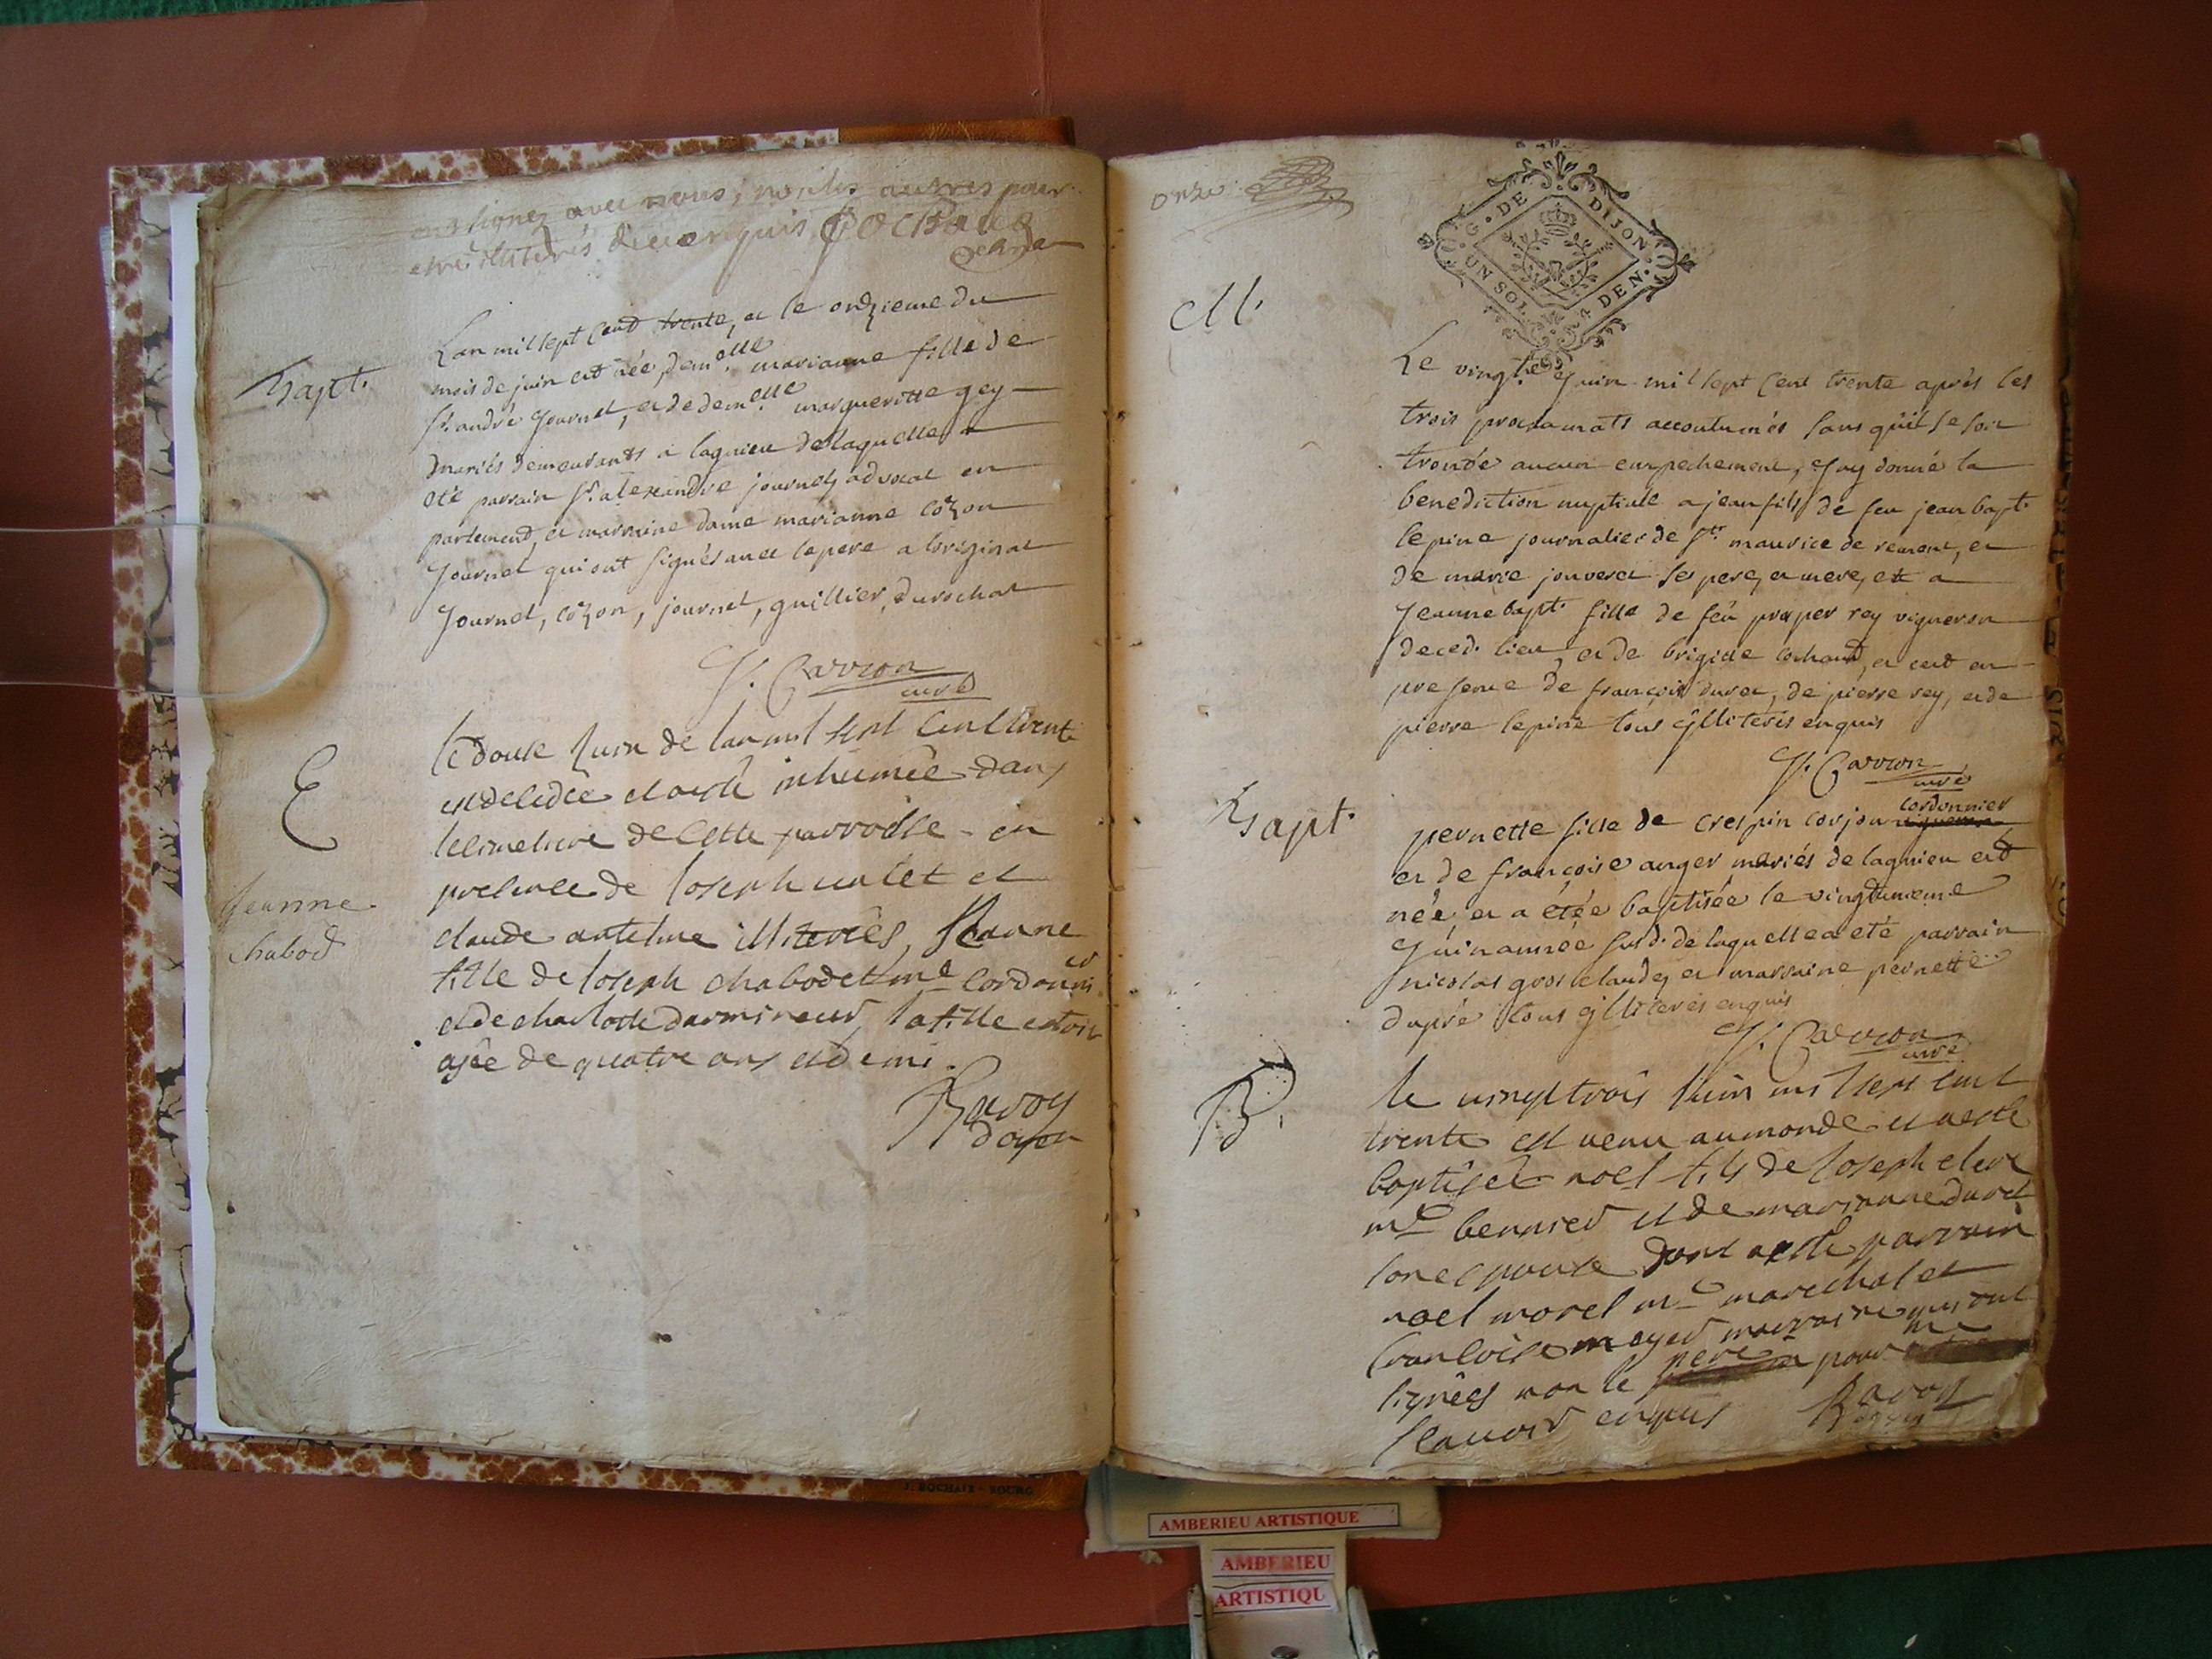 ont signez avec nous, no les autres pour
etre illiterés de ce enquis COCHAUD
Bapt.
Lan mil sept cent trente, et le onzieme du
mois de juin est née, dem.elle marianne fille de
Sr. andré Journet, et de dem.elle margueritte gey
mariés demeurants a lagnieu de laquelle a
oté parrain Sr. alexandre journet, advocat en
parlement, et marraine dame marianne cozon
Journet qui ont signés avec le pere a loriginal
Journet, cozon, journet, guillier, durochat
J. Carron
curé
E
Jeanne
chabod
le douse Juin de lan mil sept cent trente
est decedée et a esté inhumée dans
le cimetiere de cette parroisse en
presence de Joseph et
claude antelme illiterés, Jeanne
fille de Joseph chabodet me cordonnier
et de charlotte darmireur, la fille estoit
agée de quatre ans et demi.
Ravoy
doyen
onze
G. DE DIJON
UN SOL 4 DEN.
M.
Le vingt.e juin mil sept cent trente aprés les
trois proclamats accoutumés sans qu'il se soit
trouvé aucun empechement, j'ay donné la
benediction nuptiale a jean fils de feu jean bapt.
lepine journalier de St. maurice de remant, et
de marie jouveret ses pere et mere, et a
Jeanne bapt. fille de feu prosper rey vigneron
de ced. lieu et de brigitte cochaud, et cest en
presence de françois duret, de pierre rey, et de
pierre lepine tous illiterés enquis
J. Carron
curé
Bapt.
cordonnier
pernette fille de crespin corjon
et de françoise anger mariés de lagnieu est
née et a étée baptisée le vingtunieme
Juin année susd. de laquelle a eté parrain
nicolas gros claude, et marraine pernette
dupré tous illiterés enquis
J. Carron
curé
B.
le vingt trois Juin mil sept cent
trente est venu au monde et a esté
baptisé noel fils de Joseph clerc
me bennier et de marianne duret
son epouse dont a esté parrain
noel morel me marechal et
francoise mayet marraine qui ont
signés non le pere pour ne
scavoir enquis
Ravoy
doyen
J. ROCHAIX - BOURG
AMBERIEU ARTISTIQUE
AMBERIEU
ARTISTIQU